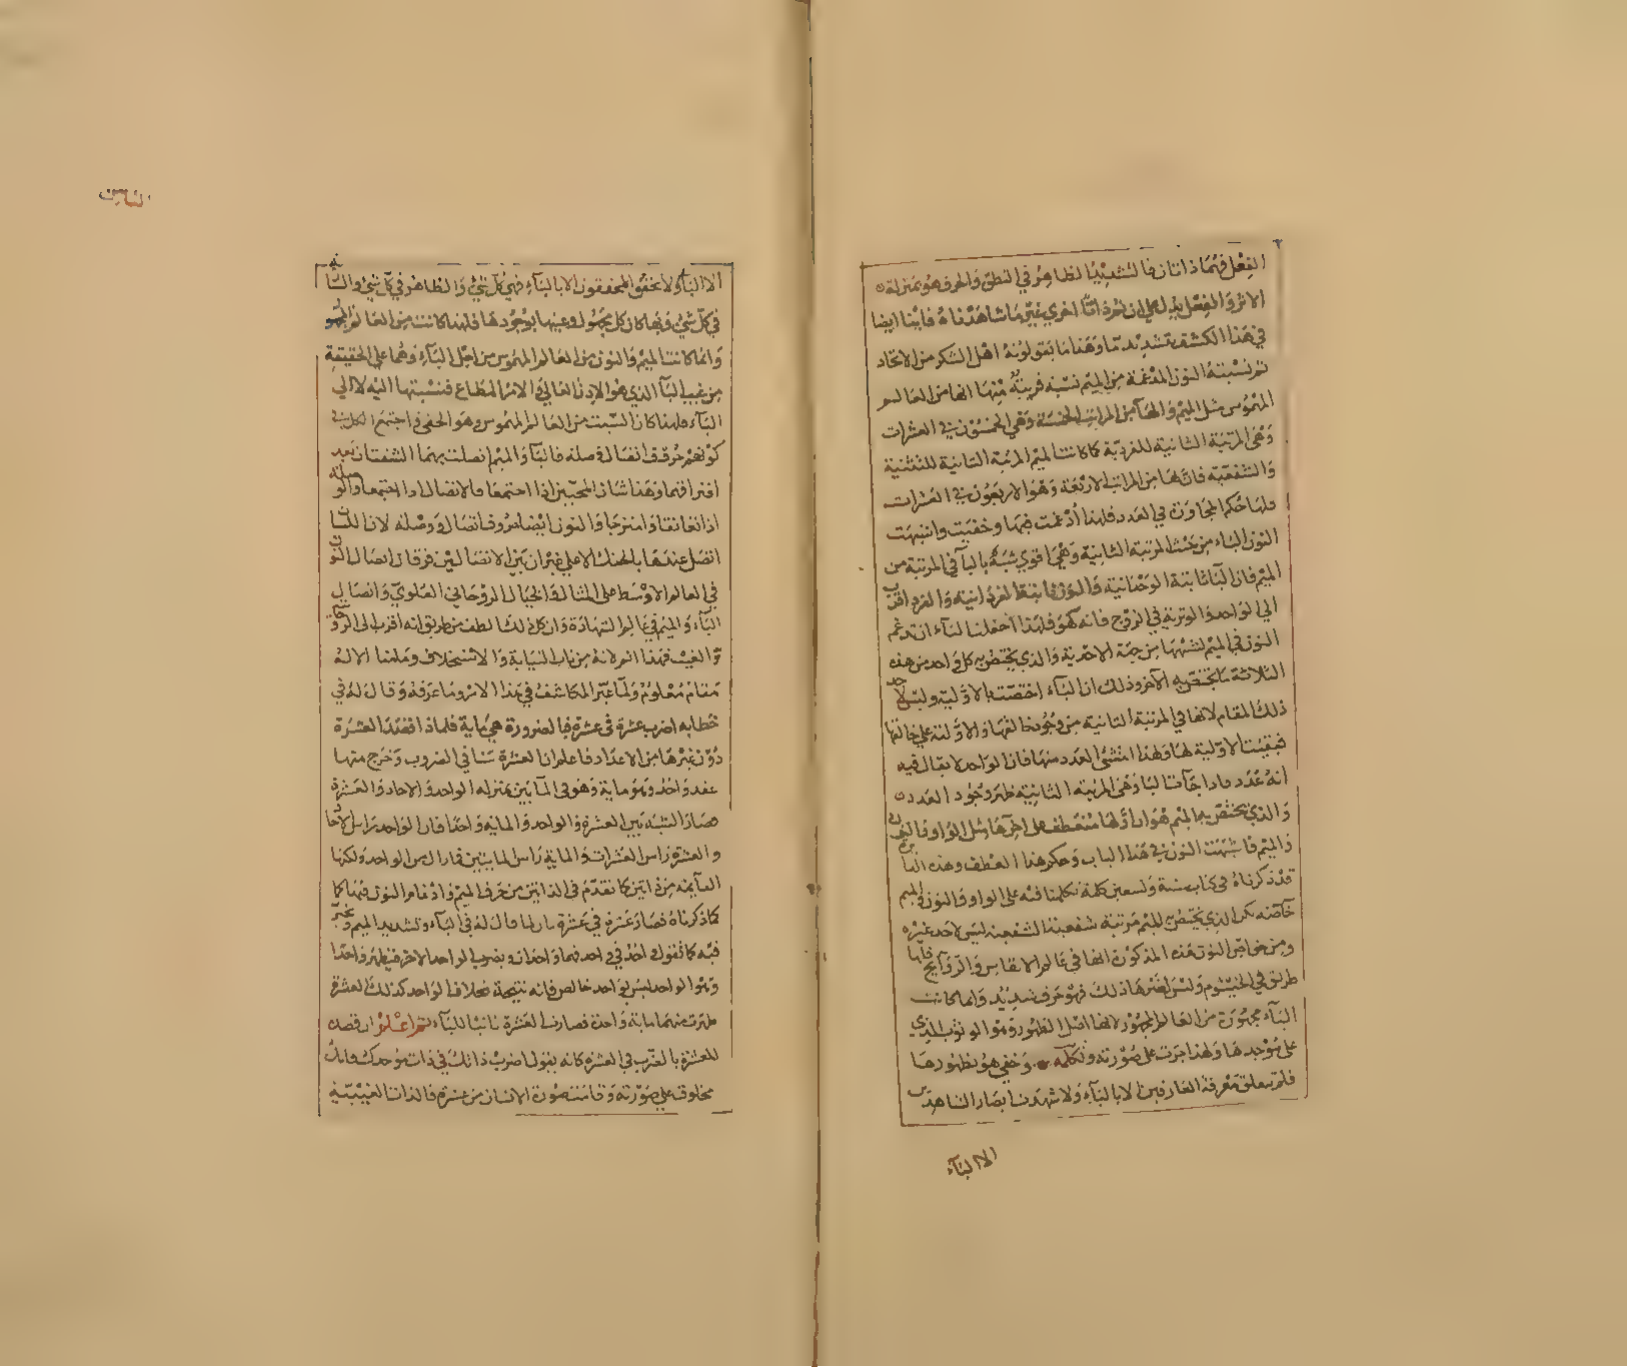 الفعل فهما ذاتان فالتشديد الظاهر في النطق والحرف هو بمنزلة
الاثر والفعل يدل على ان ثم ذاتا اخرى غير ما شاهدناه فابنا ايضا
في هذا الكشف تشديد ما وهذا ما يقولونه اهل السكر من الاتحاد
ثم نسبة النون المدغمة من الميم نسبة قريبة منها انها من العالم
المهموس مثل الميم والها من المراتب الخمسة وهي الخمسون في العشرات
وهي المرتبة الثانية للفردية كما كانت الميم المرتبة الثانية للتثنية
والشفعية فانها من المراتب الاربعة وهو الاربعون في العشرات
ولها حكم المجاورة في العدد فلهذا ادغمت فيها وخفيت واشبهت
النون الباء من حيث المرتبة الثانية وهي اقوى شبه بالبآ في المرتبة من
الميم فان البآ ثانية الوحدانية والنون ثانية الفردانية والفرد اقرب
الى الواحد والوترية في الزوج فانه كهو فلهذا اخفلنا الباء ان تدغم
النون في الميم لشبهها من جهة الاحدية والذي يختص به كل واحد من هذه
الثلاثة ما يختص به الآخر وذلك ان الباء اختصت بالاولية وليس لاحد
ذلك المقام لانها في المرتبة الثانية من وجود خالقها والاولية على خالقها
فبقيت الاولية لها ولهذا انتشئ العدد منها فان الواحد لا يقال فيه
انه عدد فاذا جآت البا وهي المرتبة الثانية ظهر وجود العدد
والذي يختص به الميم هو ان اولها منعطف على اخرها مثل الواو والنون
والميم فاشبهت النون في هذا الباب وحكم هذا العطف وهذه
قد ذكرناه في كتاب ستة وتسعين كلمة تكلمنا فيه على الواو والنون والميم
خآصة لكن الذي يختص به الميم مرتبة شفعية الشفعية ليس لاحد غيره
ومن خواص النون هذه المذكورة انها في عالم الانفاس والروايح فلها
طريق في الخيشوم وليس لغيرها ذلك فهو حرف شديد وانما كانت
البآء مجهورة من العالم المجهور لانها اصل الظهور وهو الثوب الذي
على موجدها ولهذا جرت على صورته وتكلمه وخفي هو بظهورها
فلم تتعلق معرفة العارفين الا بالبآء ولا شهدت ابصار الشاهدين
الا البآء
الثابت
الا البآء ولا تحقق المحققون الا بالبآء فهي كل شئ والظاهر في كل شئ والسارية
في كل شئ وبها كان كل مجهول وعينها بوجودها فلهذا كانت من العالم المجهور
وانما كانت الميم والنون من العالم المهموس من اجل البآء وهما على الحقيقة
من غيب البآ الذي هو الاذن العالي والامر المطاع فنسبتها اليه لا الى
البآء فلهذا كان السبت من العالم المهموس وهو الخفي واجتمع الكل في
كونهم حروف اتصال وصلة فالبآ والميم اتصلت بهما الشفتان بعد
افتراقهما وهذا شان المحبين اذا اجتمعا فالاتصال اذا اجتمعا والوصلة
اذا تعانقا وامتزجا والنون ايضا حروف اتصال ووصلة لان اللسان
اتصل عندها بالحنك الاعلى غير ان بين الاتصالين فرقان اتصال النون
في العالم الاوسط على المثال والخيال الروحاني العلوي واتصال
البآء والميم في عالم الشهادة وان كان ذلك الطف من طريق انه اقرب الى الروحانية
والغيب فهذا اتم لانه من باب النيابة والاستخلاف وما منا الا له
مقام معلوم ولما عبر المكاشف في هذا الامر وما عرفه وقال له في
خطابه اضرب عشرة في عشرة فبالضرورة هي ماية فلماذا قصد العشرة
دون غيرها من الاعداد فاعلم ان العشرة ثنا في الضروب وخرج منها
عقد واحد وهو ماية وهو في المآيين بمنزلة الواحد في الاحاد والعشرة
صار الشبه بين العشرة والواحد والماية واحدا فان الواحد راس الاحاد
والعشرة راس العشرات والماية راس المايتين فما زال من الواحد ولكنها
البآ فيه من ذاتين كما تقدم في الذاتين من حرف الميم وادغام النون فيها كما
كما ذكرناه فصار عشرة في عشرة بازا ما قال له في البآء وتشديد الميم
فيه كما تقول واحد في واحد فهما واحدان ويضرب الواحد الاخر فيظهر واحدا
وهو الواحد ليس بواحد خالص فانه نتيجة بخلاف الواحد كذلك العشرة
ظهرت منهما ماية واحدة فصارت العشرة نائبا للبآء ثم اعلم ان قصده
للعشرة بالضرب في العشرة كانه يقول اضرب ذاتك في ذات موجدك فانك
مخلوق على صورته وقامت صورة الانسان من عشرة فالذات الغيبية